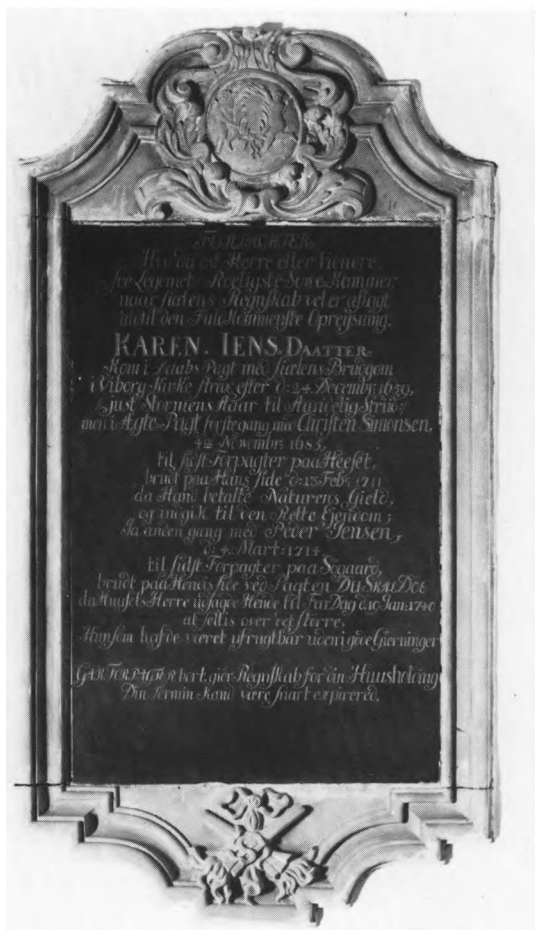 FORPACHTER,
Hvo du est Herre eller tienere,
see Legemet Roeligste Sove Kammer
naar sielens Regnskab vel er aflagt
indtil den Fuldkommenste Opreysning.
KAREN. IENS. DAATTER
Kom i Daabs Pagt med sielens Brudgom
i Viborg Kirke strax efter d: 24 Decembr: 1659,
just Stormens Aar til Aandelig Striid;
men i Ægte-Pagt første gang med Christen Simonsen,
4de Novembr: 1685,
til sidst Forpagter paa Heeset,
brudt paa Hans side d: 13 Feb: 1711
da Hand betalte Naturens Gield,
og indgik til den Rette Ejendom;
Ja anden gang med Peder Jensen,
d: 4. Mart: 1714.
til sidst Forpagter paa Søgaard,
brudt paa Hendis side ved Pagten DU SKAL DØE
da Huusets Herre udsagde Hende til FarDag d: 10 Jan: 1740
at settis over det større.
Hun som hafde været ufrugtbar uden i gode Gierninger
GAK FORPAGTER bort, giør Regnskab for din Huusholding
Din Termin Kand være snart expirered.